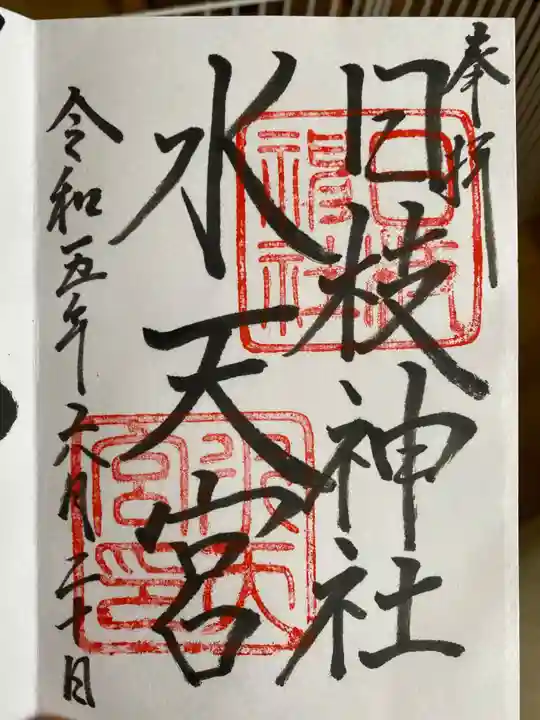 奉拝
日枝神社
水天宮
令和五年六月二十日